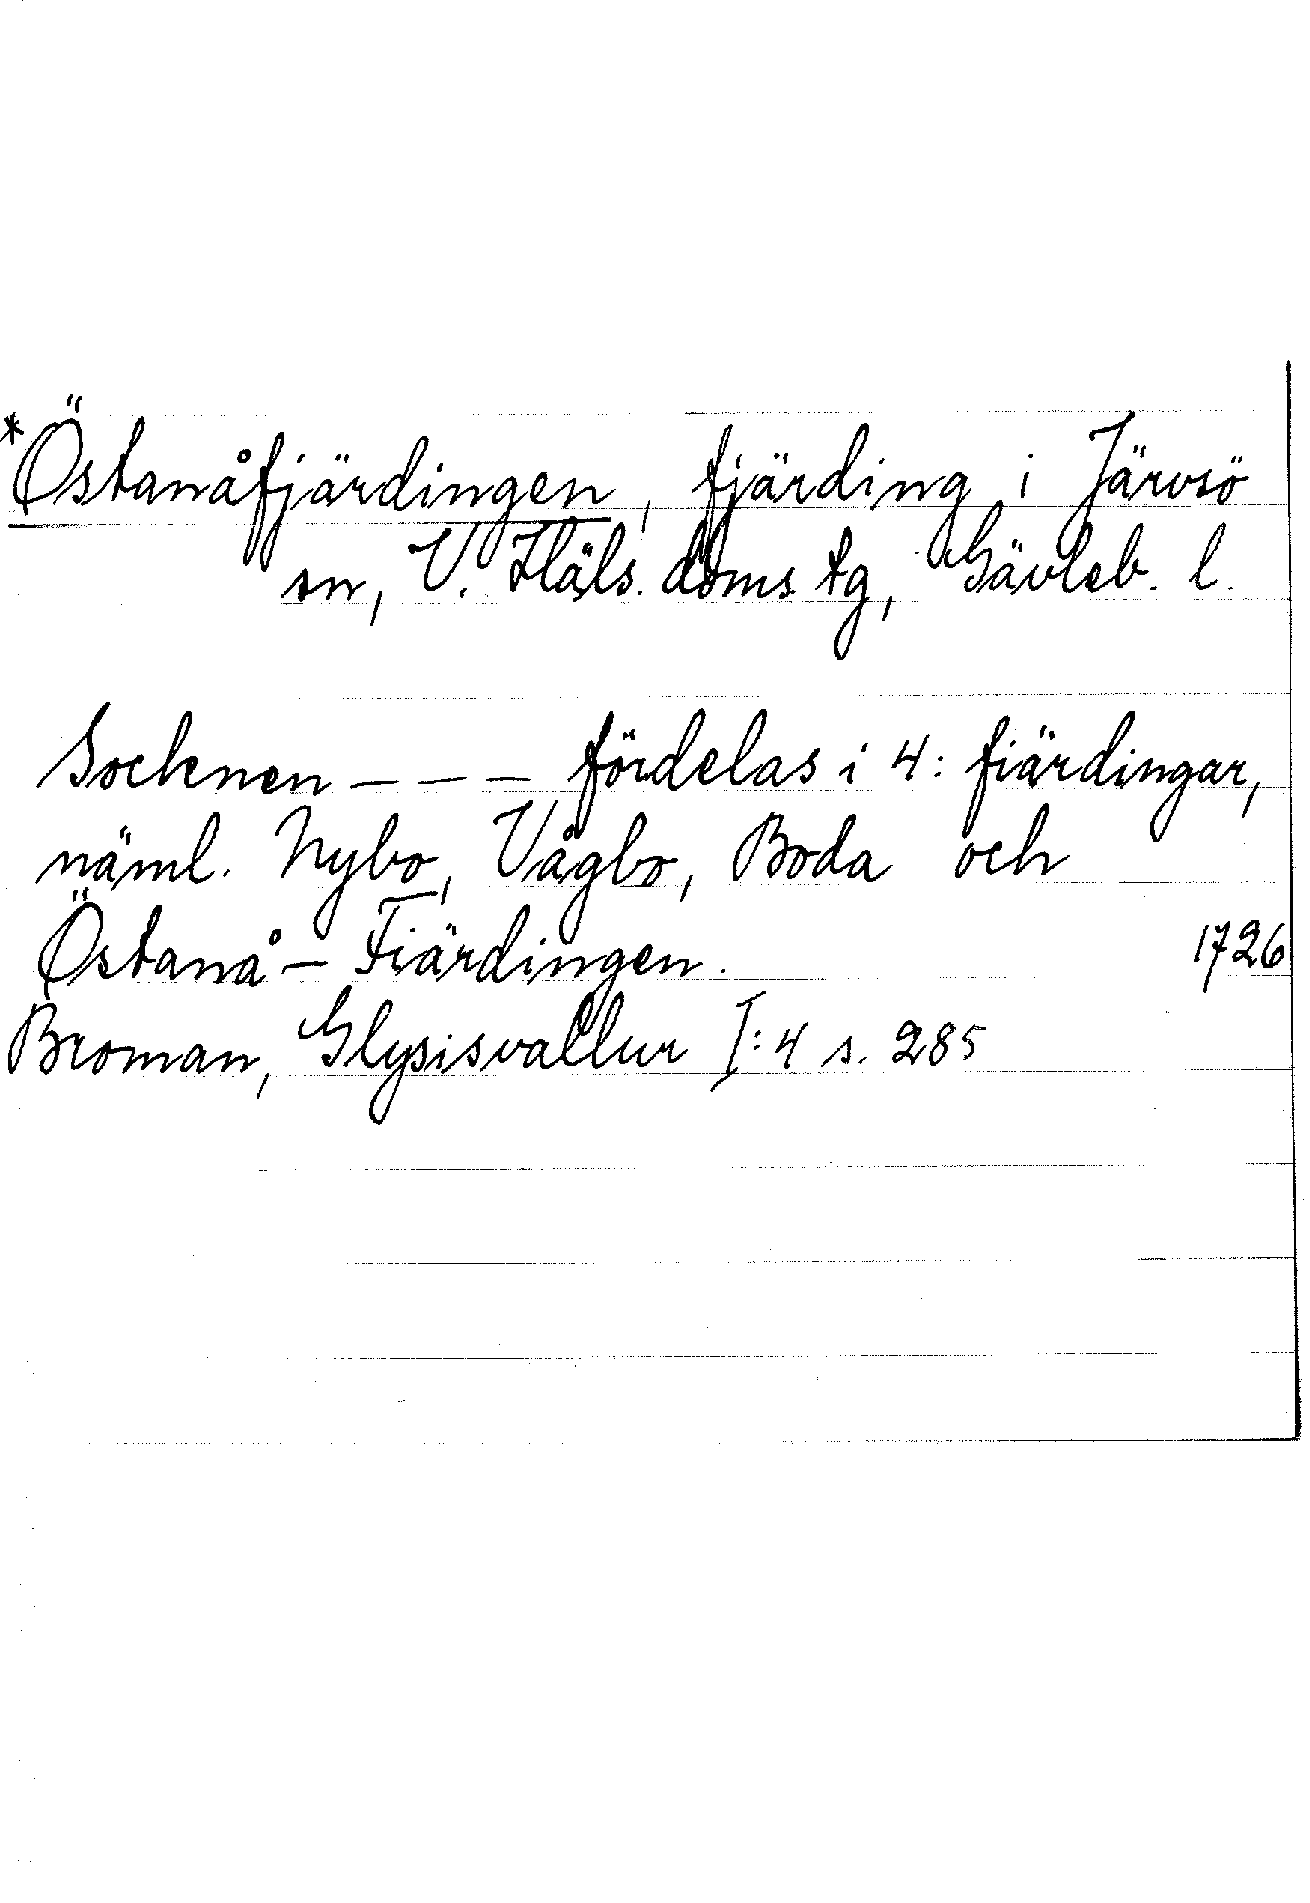 *Östanåfjärdingen, fjärding i Järvsö
sn, V. Häls. doms tg, Gävleb. l.
Socknen - - - fördelas i 4: fiärdingar,
näml. Nybo, Vågbo, Boda och
Östanå - Fiärdingen. 1726
Broman, Glysisvallur I:4 s. 285